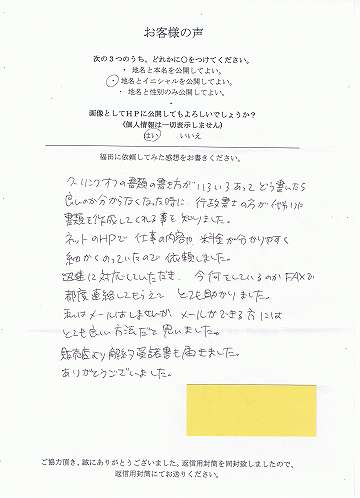 お客様の声
次の3つのうち、どれかに〇をつけてください。
・ 地名と本名を公開してよい。
・ 地名とイニシャルを公開してよい。
・ 地名と性別のみ公開してよい。
画像としてHPに公開してもよろしいでしょうか?
(個人情報は一切表示しません)
はい いいえ
福田に依頼してみた感想をお書きください。
クーリングオフの書類の書き方がいろいろあってどう書いたら
良いのか分からなくなった時に 行政書士の方が代わりに
書類を作成してくれる事を知りました。
ネットのHPで 仕事の内容や料金が分かりやすく
細かくのっていたので依頼しました。
迅速に対応していただき、今何をしているのかFAXで
都度連絡してもらえて とても助かりました。
私はメールはしませんが、メールができる方には
とても良い方法だと思いました。
販売店より解約承諾書も届きました。
ありがとうございました。
ご協力頂き、誠にありがとうございました。返信用封筒を同封致しましたので、
返信用封筒にてお送りください。